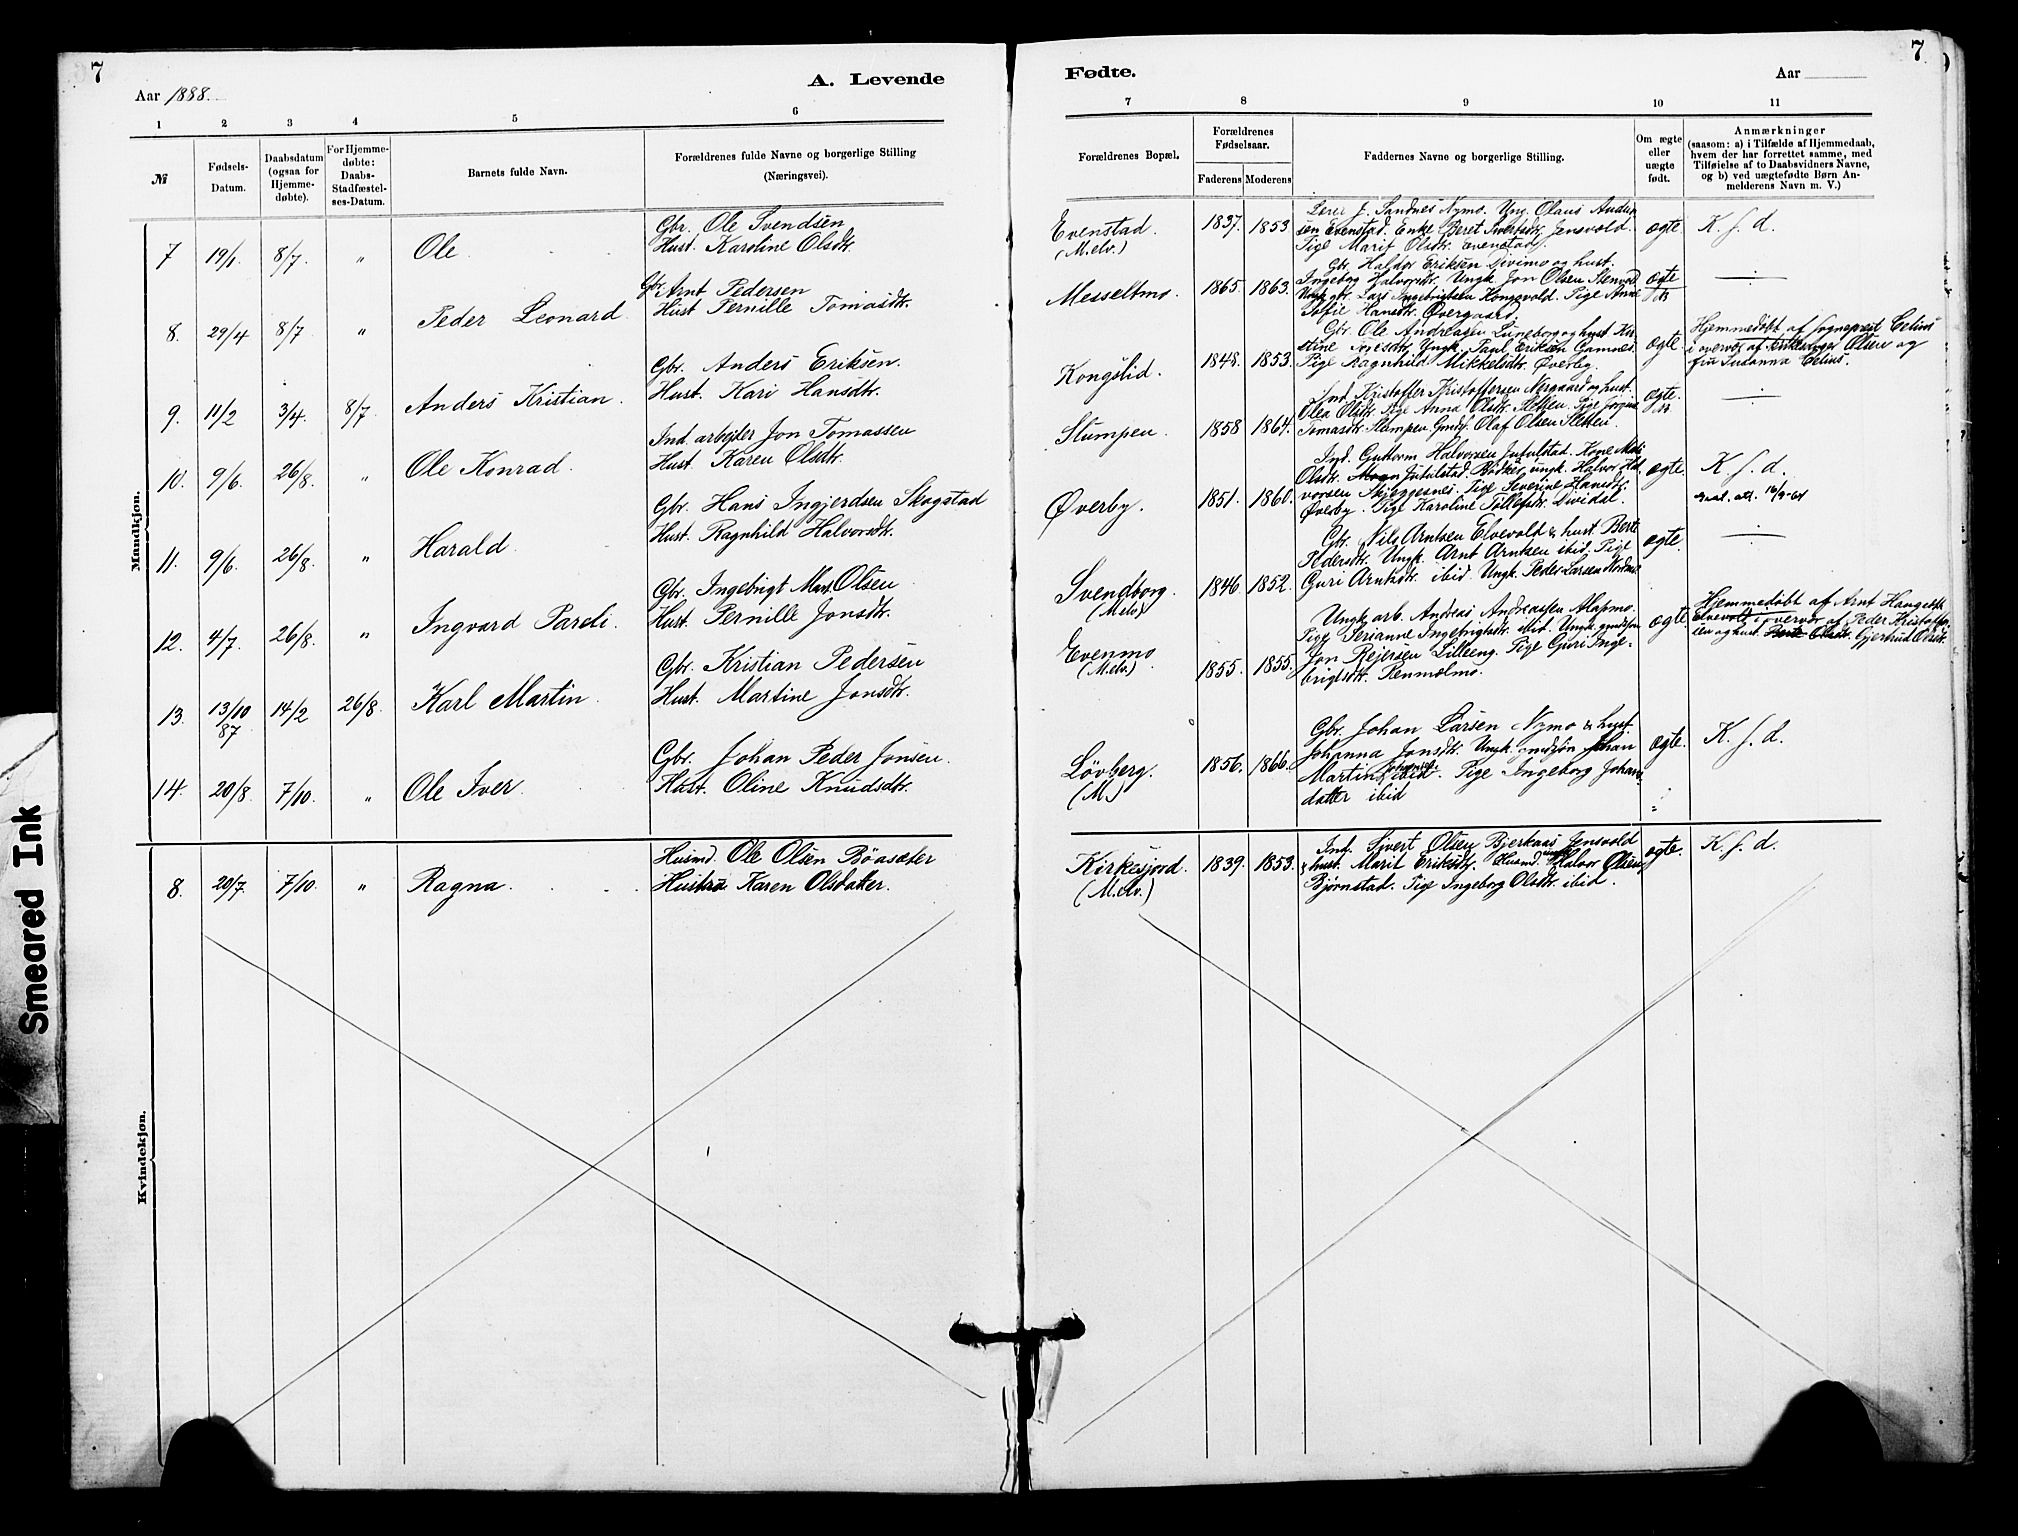 7
Aar 1888.
A. Levende
1 2 3 4 5 6
№
Fødsels-
Datum.
Daabsdatum
(ogsaa for
Hjemme-
døbte).
For Hjemme-
døbte:
Daabs-
Stadfæstel-
ses-Datum.
Barnets fulde Navn.
Forældrenes fulde Navne og borgerlige Stilling
(Næringsvei).
Mandkjøn.
7 19/1 8/7 " Ole
Gbr. Ole Svendsen
Hust. Karoline Olsdtr.
8. 29/4 8/7 " Peder Leonard
Gbr. Arnt Pedersen
Hust Pernille Tomasdtr.
9. 11/2 3/4. 8/7 Anders Kristian.
Gbr. Anders Eriksen.
Hust. Kari Hansdtr.
10. 9/6. 26/8. " Ole Konrad.
Ind. arbejder Jon Tomassen
Hust. Karen Olsdtr.
11. 9/6. 26/8. " Harald
Gbr. Hans Ingjerdsen Skogstad
Hust. Ragnhild Halvorsdtr.
12. 4/7. 26/8. " Ingvard Pareli.
Gbr. Ingebrigt Olsen
Hust. Pernille Jonsdtr.
13. 13/10 87 14/2 26/8. Karl Martin
Gbr. Kristian Pedersen
Hust. Martine Jonsdtr.
14. 20/8. 7/10. " Ole Iver.
Gbr. Johan Peder Jonsen.
Hust. Oline Knudsdtr.
Kvindekjøn.
8. 20/7. 7/10. " Ragna.
Husmd. Ole Olsen Böasæter
Hustru Karen Olsdatter.
7
Fødte.
Aar
7 8 9 10 11
Forældrenes Bopæl.
Forældrenes
Fødselsaar.
Faderens.
Moderens
Faddernes Navne og borgerlige Stilling.
Om ægte
eller
uægte
født.
Anmærkninger
(saasom: a) i Tilfælde af Hjemmedaab,
hvem der har forrettet samme, med
Tilføielse af to Daabsvidners Navne,
og b) ved uægtefødte Børn An-
melderens Navn m. V.)
Evenstad.
(M.elv.)
1837. 1853.
Lærer J. Sandnes Nymo. Ung. Olaus Andre
sen Evenstad. Enke Beret Jensvold.
Pige Marit Olsdtr. Evenstad
ægte.
K. f. d.
Messeltmo.
1865. 1863.
Gbr Haldor Eriksen Divimo og hust.
Ingeborg Halvorsdtr. Ungk. Jon Olsen
gbr. Lars Ingebrigtsen Kongsvold. Pige Anne
Sofie Hansdtr. Øvergaard.
ægte
Kongslid.
1848. 1853.
Gbr. Ole Andreasen Luneborg og hust Kir
stine Ungk. Paul Eriksen Gamnes.
Pige Ragnhild Mikkelsdtr. Øverbg.
ægte
Hjemmedøbt af sogneprest Celius
i overvær af Olsen og
fru Susanna Celius.
Slumpen.
1858 1864.
Ind. Kristoffer Kristoffersen Nergaard og hust.
Olea Olsdtr. Pige Anna Olsdtr. Sletten. Pige
Tomasdtr. Slumpen. Olaf Olsen Sletten.
ægte.
Øverby.
1851. 1860.
Ind. Guttorm Halvorsen Jutulstad. Kone
Olsdtr. Jutulstad. Bödker, ungk. Halvor Hal
vorsen Skjeggesnes. Pige Severine Hansdtr.
Øverby. Pige Karoline Tollefsdtr. Dividal.
ægte.
K. f. d.
Svendborg.
(Melv)
1846. 1852.
Gbr. Nils Arntsen Elvevold & hust. Berte
Pedersdtr. Ungk. Arnt Arntsen ibid. Pige
Guri Arntsdtr. ibid. Ungk. Peder Larsen Nordmo
ægte.
Evenmo
(M.elv.)
1855. 1855.
Ungk. arb. Andreas Andreassen Alapmo.
Pige Perianne Ingebrigtsdtr. ibid. Ungk. gmdsøn
Jon Rejersen Lilleeng. Pige Guri Inge-
brigtsdtr. Renmælmo.
ægte.
Hjemmedøbt af Arnt Haugens
Elvevold i overvær af Peder Kristoffer
sen og hust. Gjertrud Olsdtr.
Lövberg.
(M.)
1856. 1866.
Gbr. Johan Larsen Nymo & hust.
Johanna Jonsdtr. Ungk. gmdsøn Johan
Martin ibid. Pige Ingeborg Johans
datter ibid
ægte.
K. f. d.
Kirkesjord.
(M.elv.)
1839. 1853.
Ind. Sivert Olsen Bjerkaas Jensvold
& hust. Marit Eriksdtr. Husmd. Halvor Olsen
Bjørnstad. Pige Ingeborg Olsdtr. ibid.
ægte.
K. f. d.
Smeared Ink